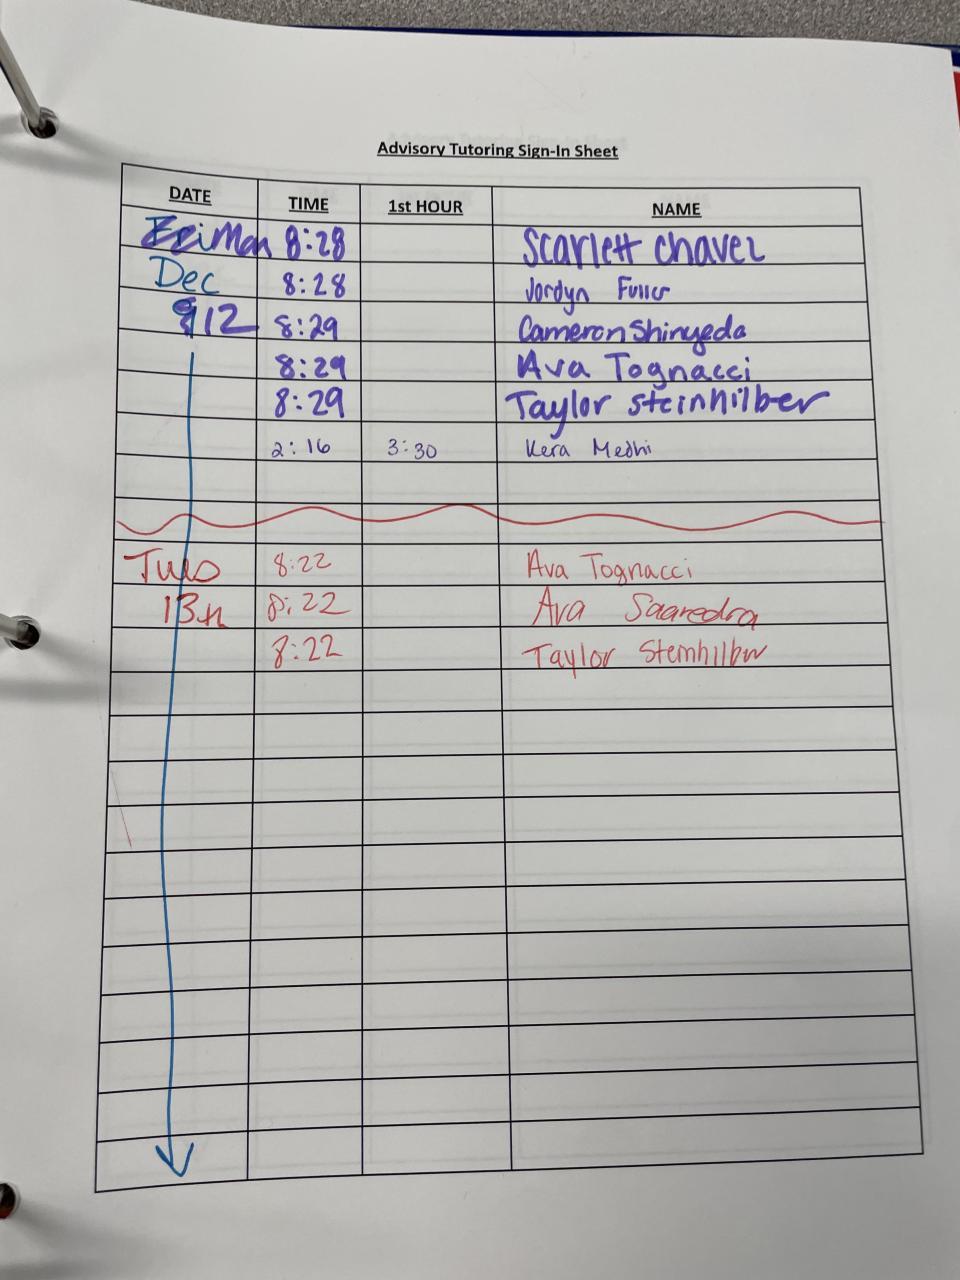 Advisory Tutoring Sign-In Sheet
DATE TIME 1st HOUR NAME
Fri Mon 8:28 Scarlett Chavez
Dec 8:28 Jordyn Fuller
12 8:29 Cameron Shinyeda
8:29 Ava Tognacci
8:29 Taylor steinhilber
2:16 3:30 Kera Medhi
8:22 Ava Tognacci
13th 8:22 Ava Saavedra
8:22 Taylor Steinhilber